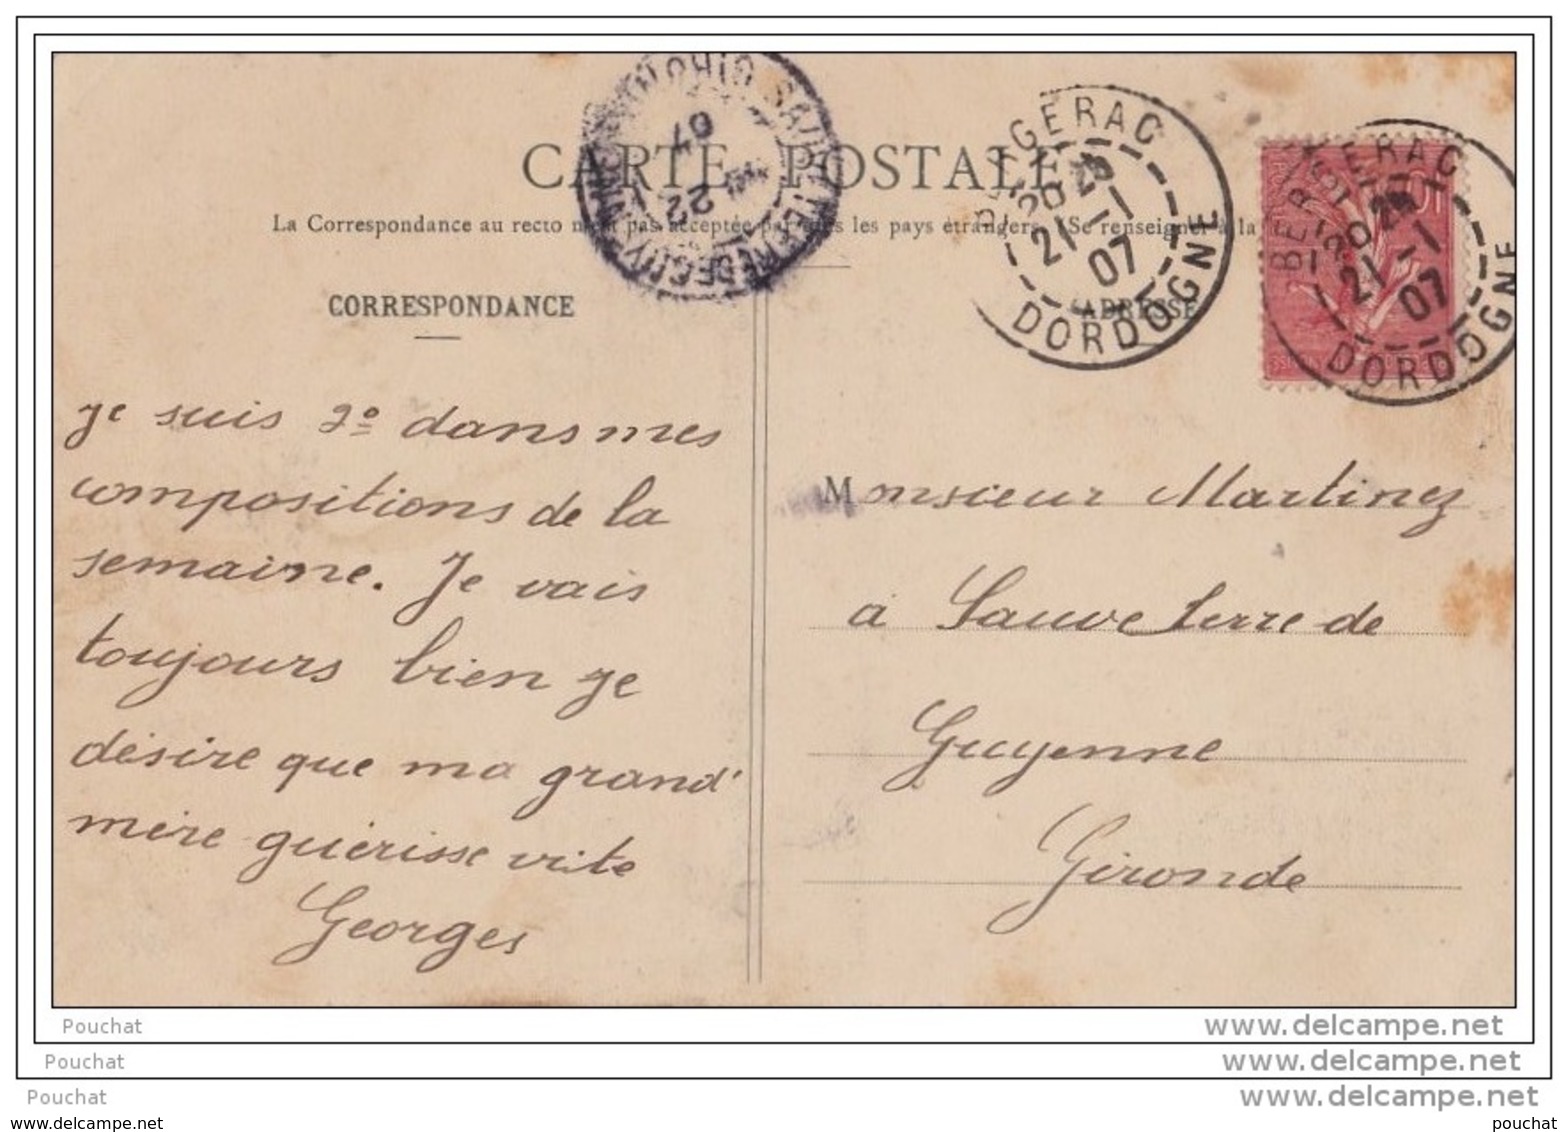 CARTE POSTALE
La Correspondance au recto n'est pas acceptée par tous les pays étrangers. (Se renseigner à la
CORRESPONDANCE
ADRESSE
BERGERAC
20 21 -1 07
DORDOGNE
BERGERAC
20 21 -1 07
DORDOGNE
22
07
je suis 2º dans mes
compositions de la
semaine. Je vais
toujours bien je
désire que ma grand'
mère guérisse vite
Georges
Monsieur Martinez
à Sauveterre de
Guyenne
Gironde
Pouchat
www.delcampe.net
Pouchat
www.delcampe.net
Pouchat
www.delcampe.net
www.delcampe.net
pouchat